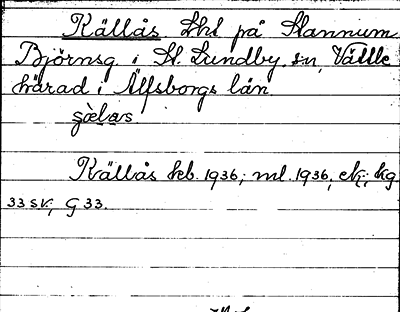 Källås Lht på Stannum
Björnsg. i St. Lundby sn, Vättle
härad i Älfsborgs län
Källås heb. 1936; ml. 1936, ek; kg
33 SV, G 33.